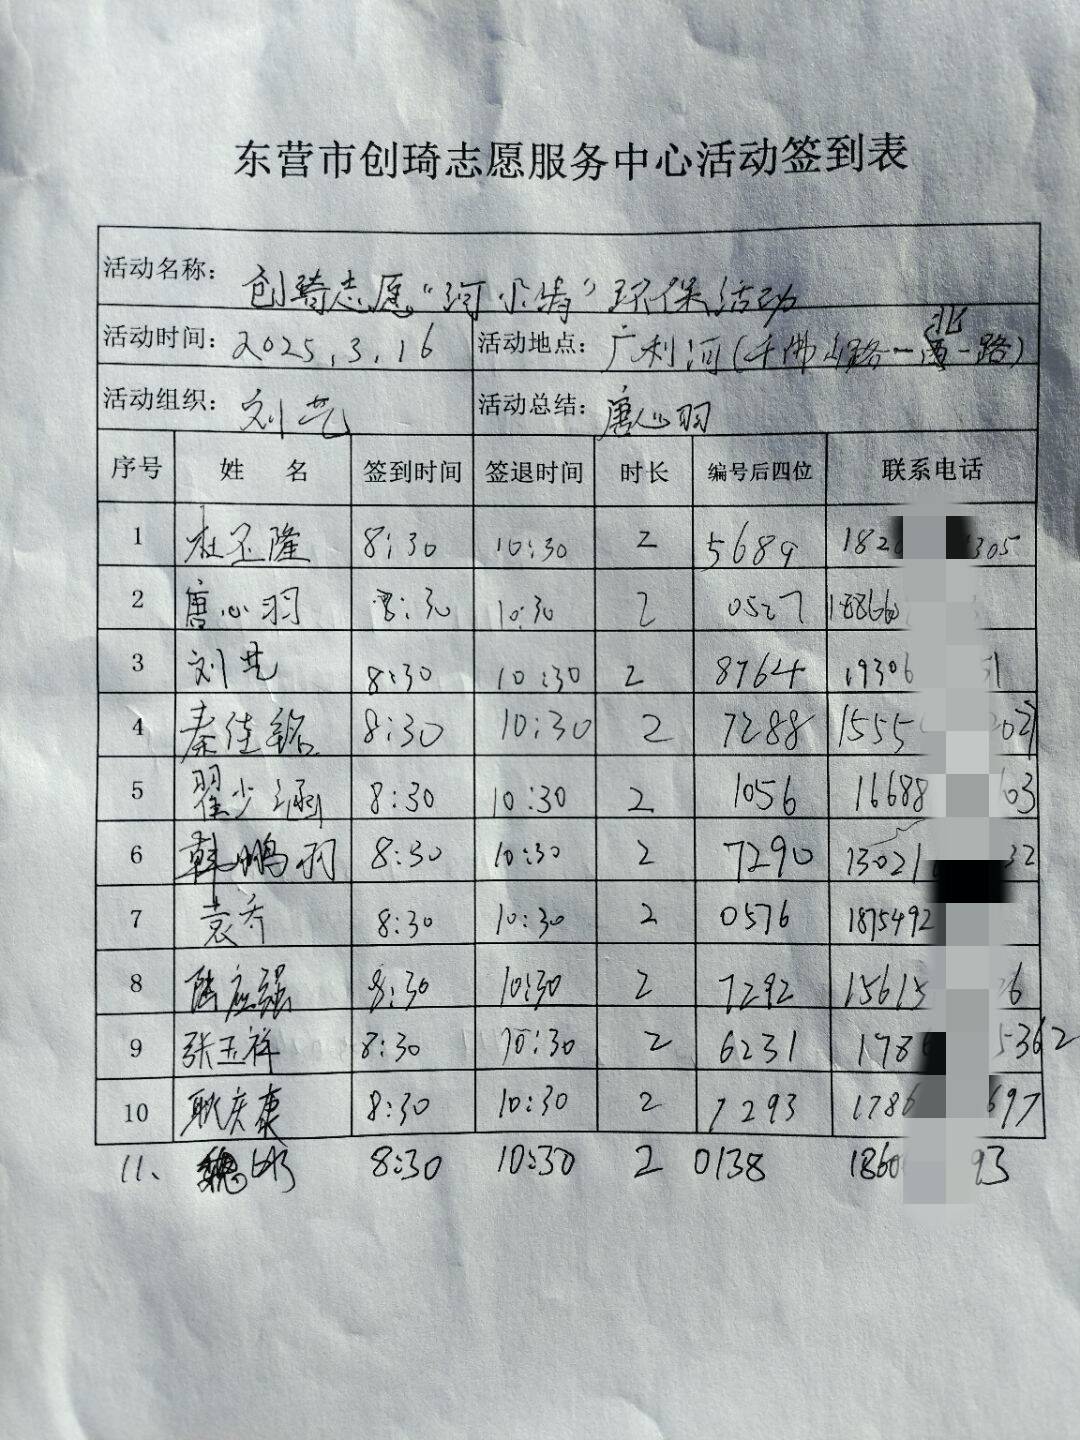 东营市创琦志愿服务中心活动签到表
活动名称: 创琦志愿“河小青”环保活动
活动时间: 2025.3.16 活动地点: 广利河(千佛山路一北一路)
活动组织: 刘艺 活动总结: 唐心羽
序号 姓 名 签到时间 签退时间 时长 编号后四位 联系电话
1 杜丕隆 8:30 10:30 2 5689 182 305
2 唐心羽 8:30 10:30 2 0527 18866
3 刘艺 8:30 10:30 2 8764 19306 51
4 秦佳铭 8:30 10:30 2 7288 1555 202
5 翟少涵 8:30 10:30 2 1056 16688 63
6 韩鹏羽 8:30 10:30 2 7290 13021 32
7 袁乔 8:30 10:30 2 0576 1875492
8 陆应强 8:30 10:30 2 7292 15615 26
9 张玉祥 8:30 10:30 2 6231 178 5362
10 耿庆康 8:30 10:30 2 7293 1786 697
11、 魏 8:30 10:30 2 0138 1860 93